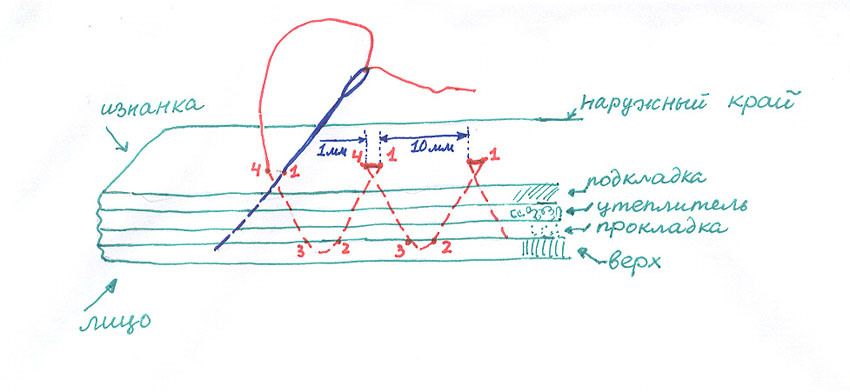 изнанка
наружный край
1мм
10мм
4 1 4 1 1
подкладка
утеплитель
прокладка
3 2 3 2
верх
лицо